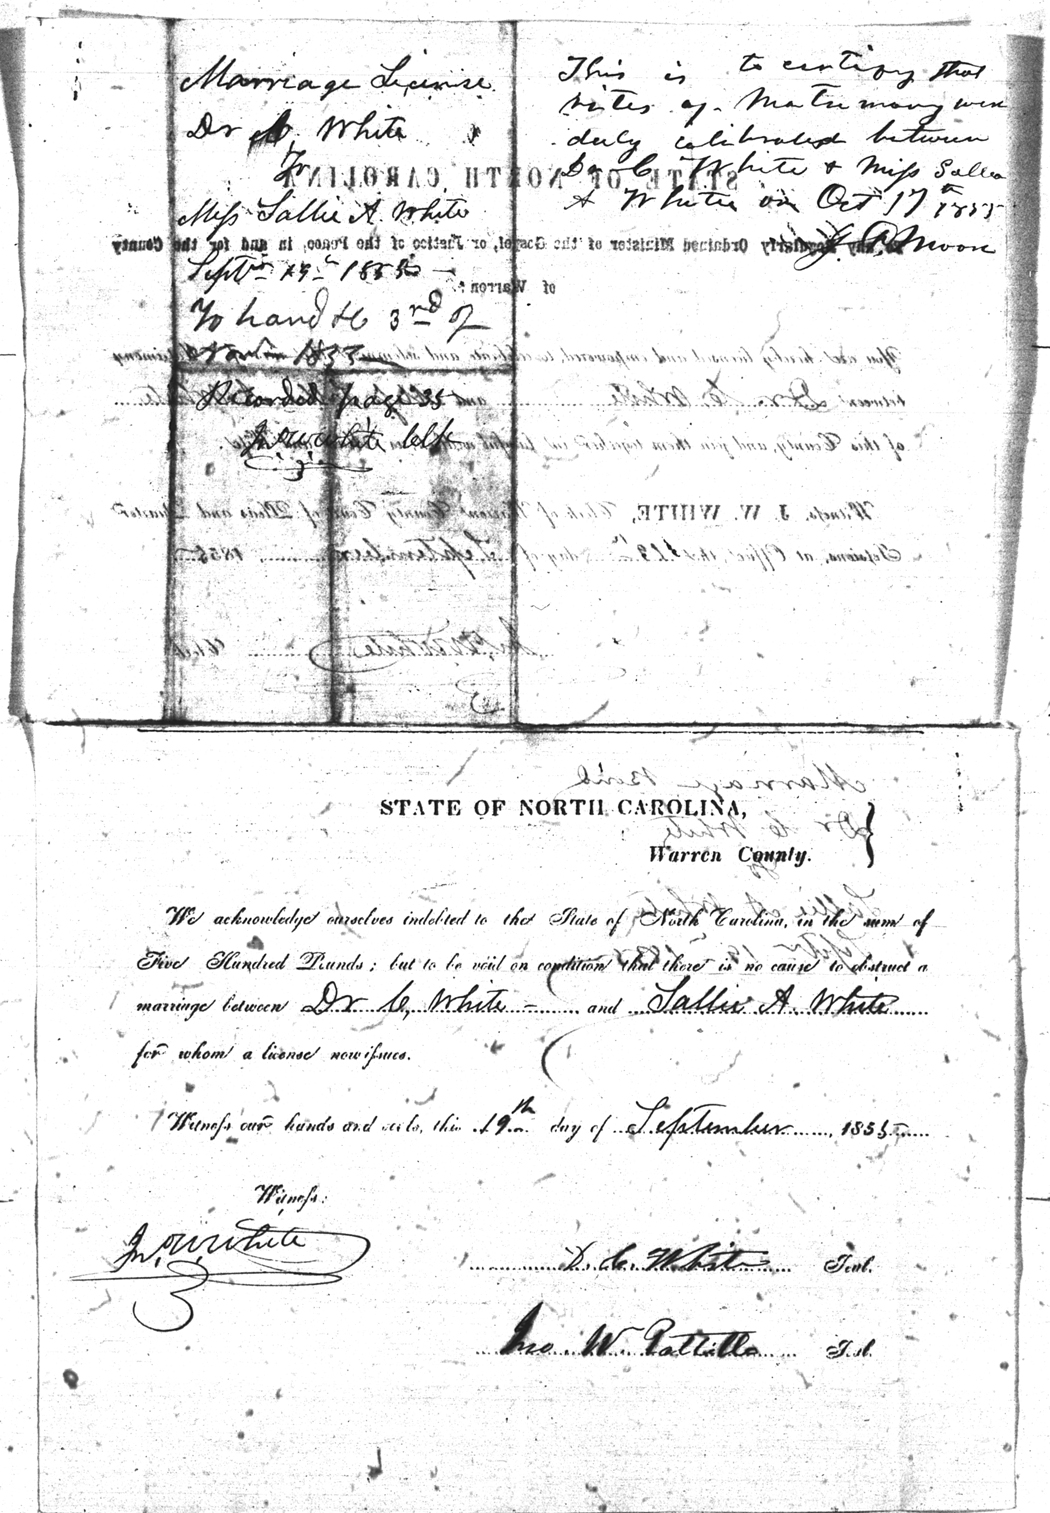 Marriage License
Dr C, White
To
Miss Sallie A. White
Septr 19th 1855
To hand the 3rd of
1855
Recorded page 35
Jno W White Clk
This is to certify that
rites of Matrimony were
duly celibrated between
Dr C White & Miss Sallie
A White on Oct 17th 1855
Moon
STATE OF NORTH CAROLINA
To any Regularly Ordained Minister of the Gospel, or Justice of the Peace, in and for the County
of Warren:
You are hereby licensed and empowered to celebrate and solemnize
between Dr. C. White and
of this County, and join them together
Witness, J. W. WHITE, Clerk of Warren County Court of Pleas and Quarter
Sessions, at Office, this 19th day of September 1855
Jno W White Clk
STATE OF NORTH CAROLINA,
Warren County.
We acknowledge ourselves indebted to the State of North Carolina, in the sum of
Five Hundred Pounds; but to be void on condition that there is no cause to obstruct a
marriage between Dr C, White and Sallie A. White
for whom a license now issues.
Witness our hands and seals, this 19th day of September, 1855
Witness:
Jno W White
D. C. White Seal.
Jno. W. Pattillo Seal.
Marriage Bond
Dr C White
Sallie A White
Septr 19th 1855